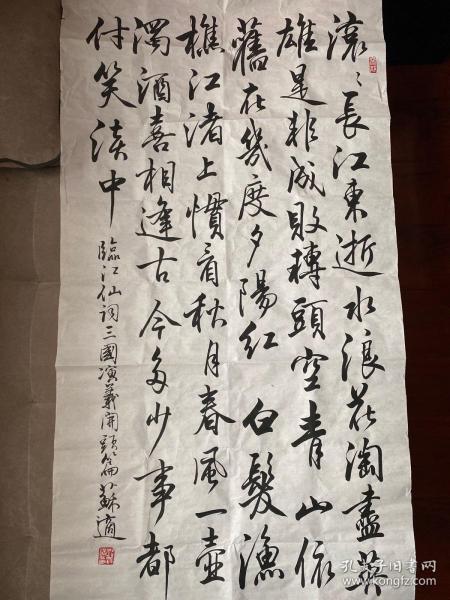 滚〻長江東逝水浪花淘盡英
雄是非成敗轉頭空青山依
舊在幾度夕陽紅 白髮漁
樵江渚上慣看秋月春風一壺
濁酒喜相逢古今多少事都
付笑談中
臨江仙詞三國演義開頭篇 蘇適
孔夫子旧书网